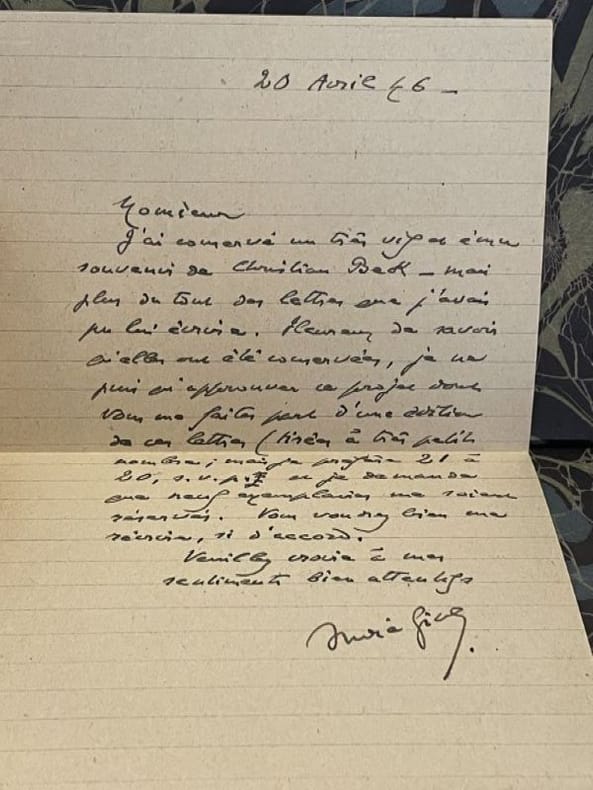 20 Avril 46 _
Monsieur
J'ai conservé un très vif et ému
souvenir de Christian Beck – mais
plus du tout des lettres que j'avais
pu lui écrire. Heureux de savoir
qu'elles ont été conservées, je ne
puis qu'approuver ce projet dont
vous me faites part d'une édition
de ces lettres (tirées à très petit
nombre; mais je préfère 21 à
20, s.v.p. et je demande
que neuf exemplaires me soient
réservés. Vous voudrez bien me
récrire, si d'accord.
Veuillez croire à mes
sentiments bien attentifs
André Gide.